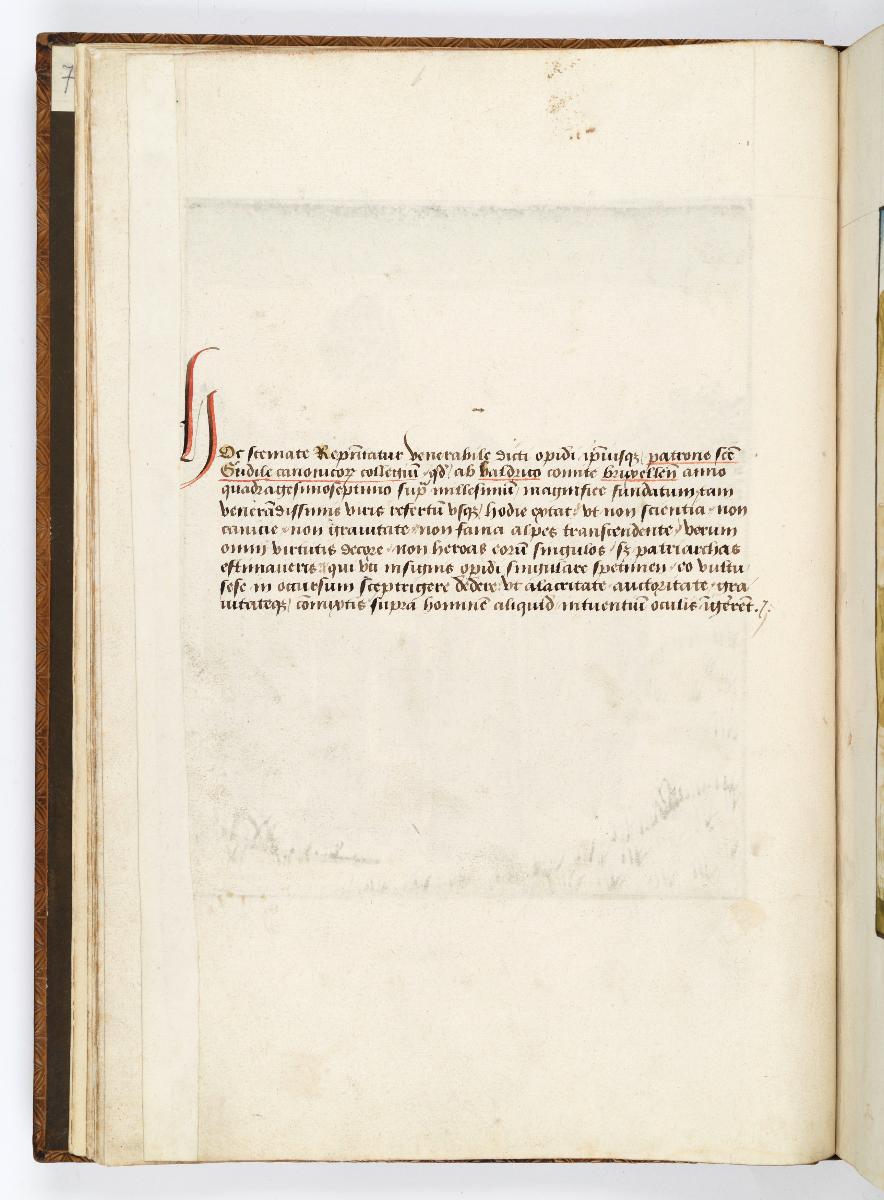 7
HOc scemate Repñtatur venerabile dicti opidi ipiusq3 patrone scē
Gudile canonicoꝝ collegiū qd' ab baldrico comite bruxellen̄ anno
quadragesimoseptimo sup̄ millesimū magnifice fundatum tam
venerādissimis viris refertū vsq3 hodie extat vt non scientia non
canicie non grauitate non fama alpes transcendente verum
omni virtutis decore non heroas eorū singulos s3 patriarchas
estimaueris qui vti insignis opidi singulare specimen eo vultu
sese in occursum sceptrigere dedere vt alacritate auctoritate gra
uitateq3 comptis supra hominē aliquid intuentiū oculis īgererēt